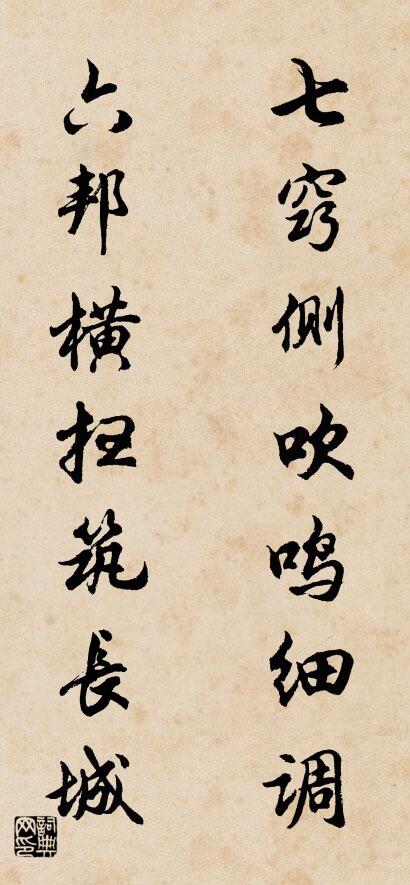 七窍侧吹鸣细调
六邦横扫筑長城
詞典网印